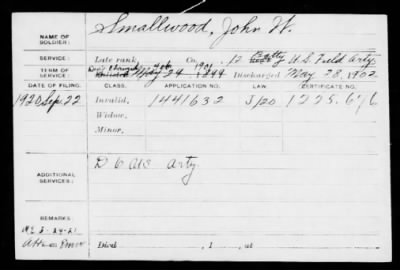 NAME OF SOLDIER: Smallwood, John W.
SERVICE: Late rank, Co. 12 Batty U.S. Field Arty.
TERM OF SERVICE: 1901 24 1899 Discharged May 28, 1902.
DATE OF FILING. CLASS. APPLICATION NO. LAW. CERTIFICATE NO.
1920 Sep. 22 Invalid, 1441632 J/20 1225.676
Widow,
Minor,
ADDITIONAL SERVICES: D 6 Arty.
REMARKS:
Died , 1 , at